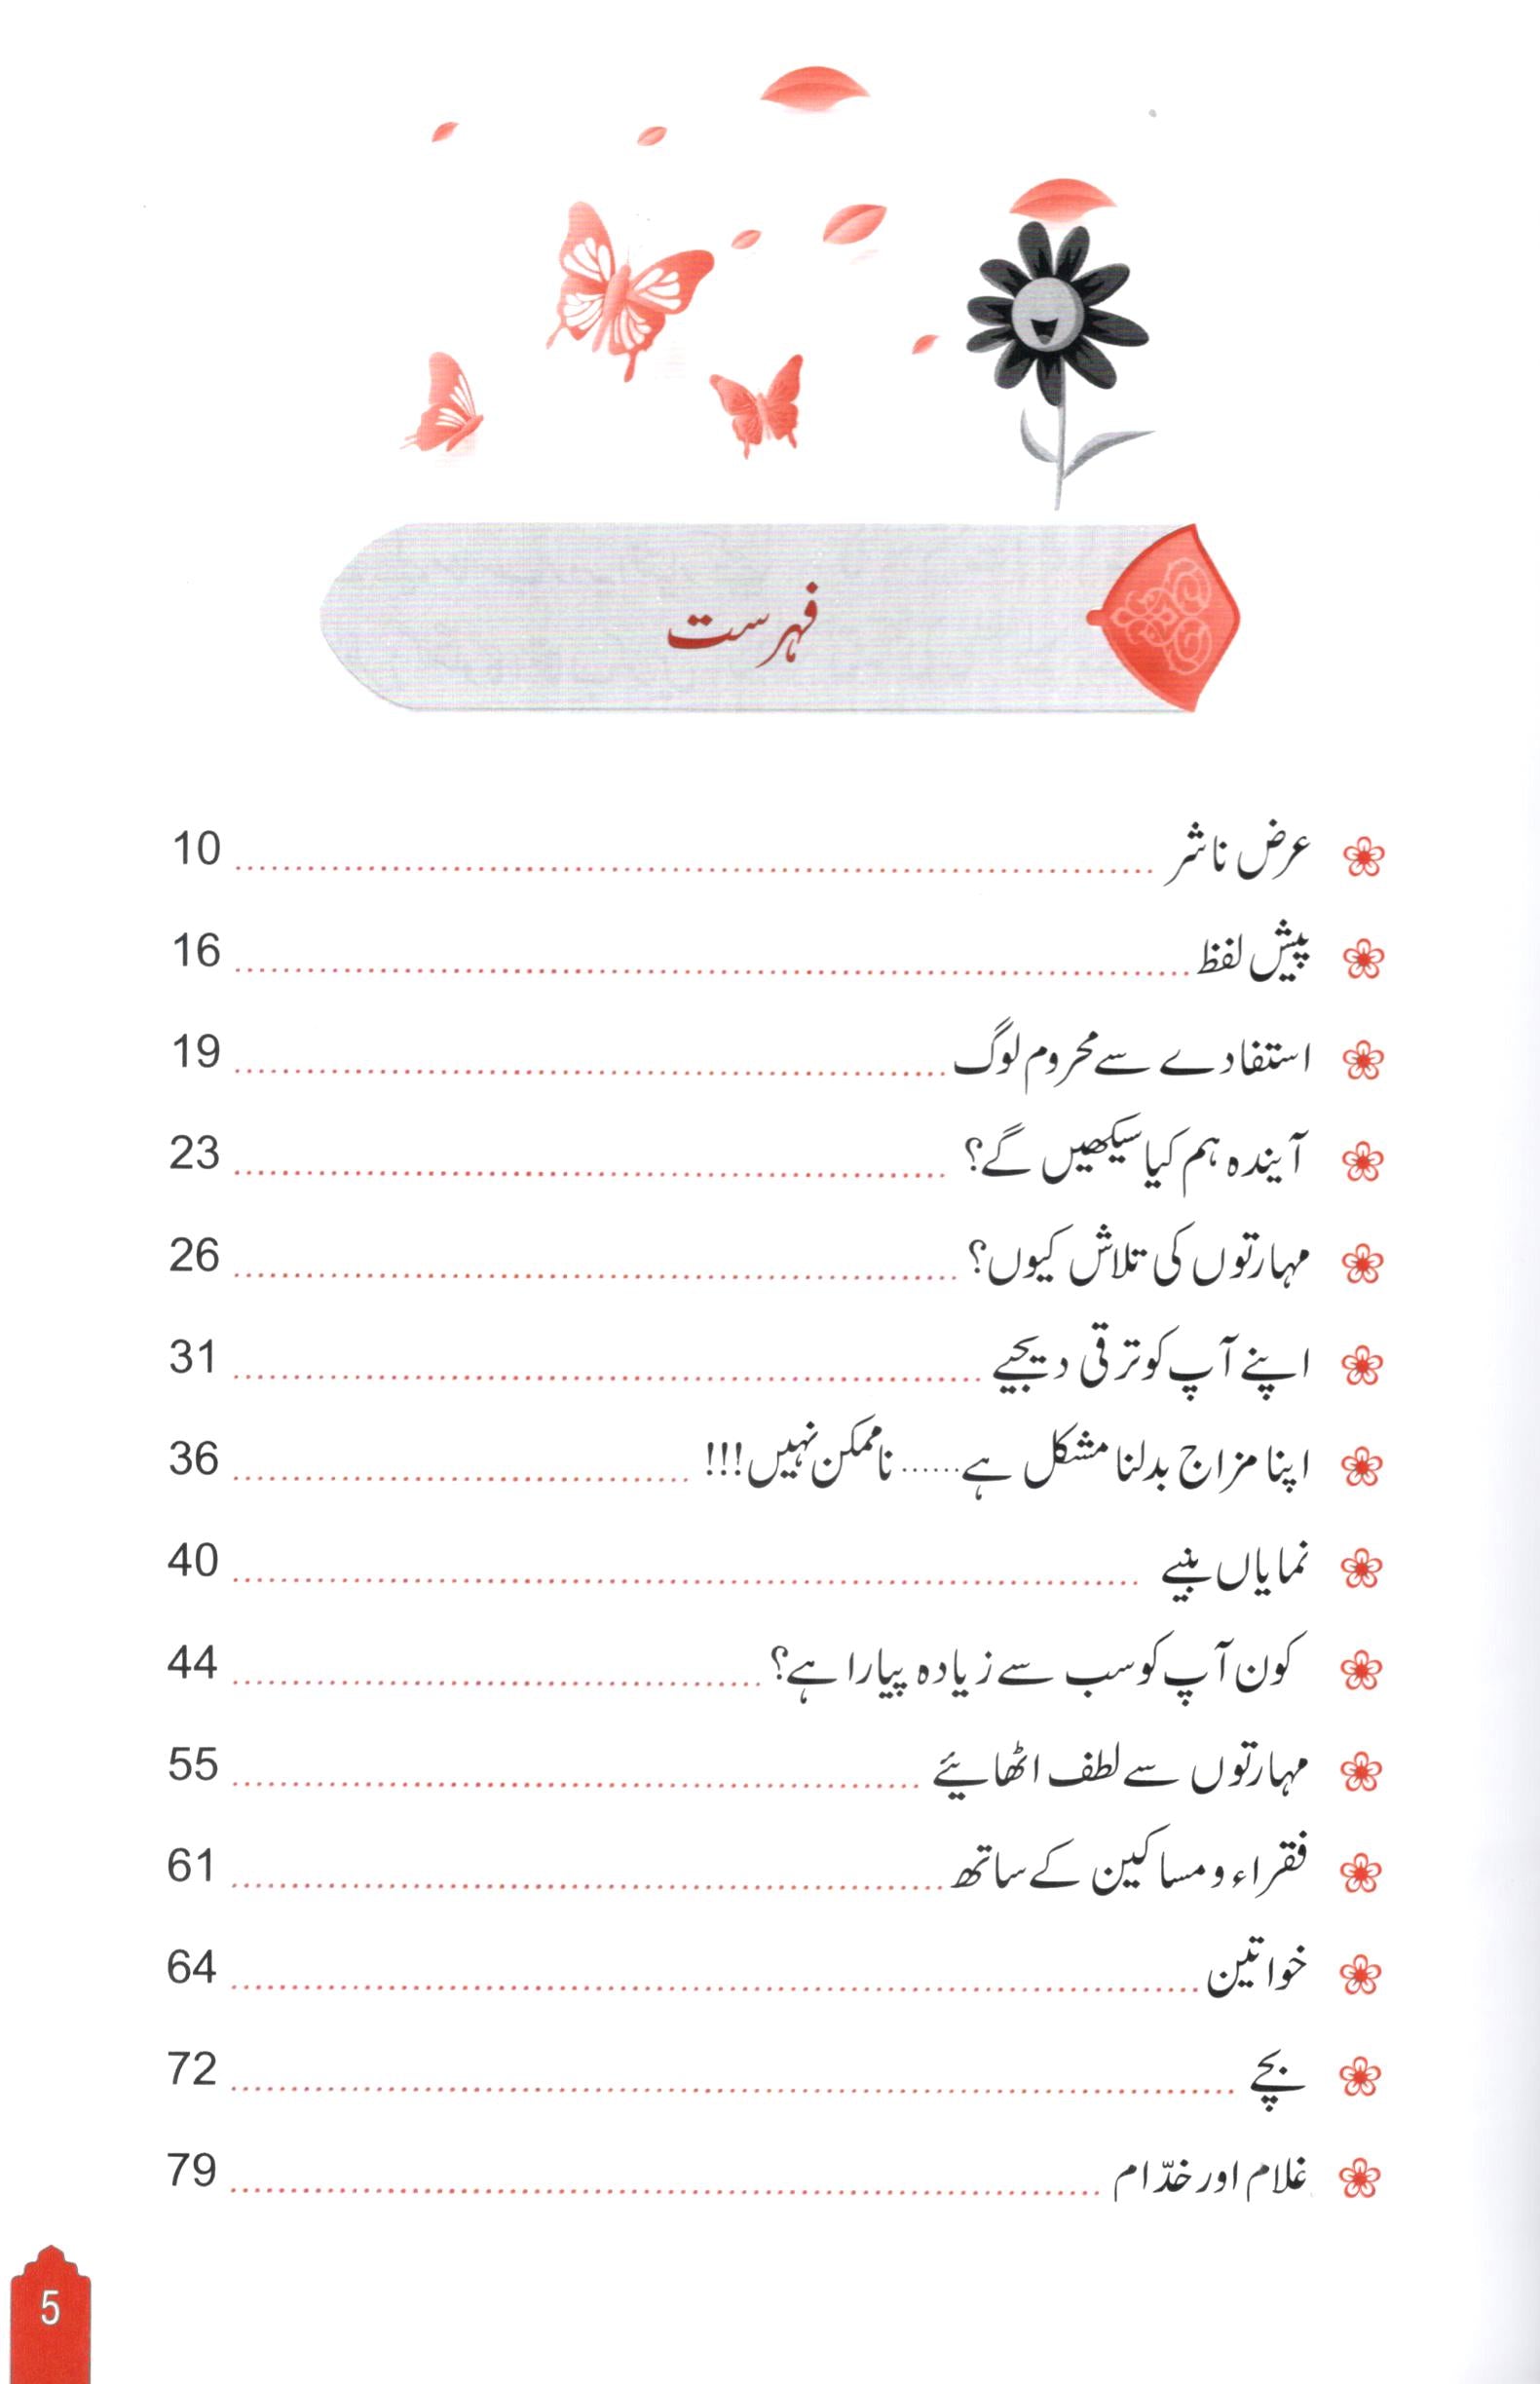 فہرست
عرض ناشر ........ 10
پیش لفظ ........ 16
استفادے سے محروم لوگ ........ 19
آیندہ ہم کیا سیکھیں گے؟ ........ 23
مہارتوں کی تلاش کیوں؟ ........ 26
اپنے آپ کو ترقی دیجیے ........ 31
اپنا مزاج بدلنا مشکل ہے...... ناممکن نہیں!!! ........ 36
نمایاں بنیے ........ 40
کون آپ کو سب سے زیادہ پیارا ہے؟ ........ 44
مہارتوں سے لطف اٹھائیے ........ 55
فقراء و مساکین کے ساتھ ........ 61
خواتین ........ 64
بچے ........ 72
غلام اور خدّام ........ 79
5